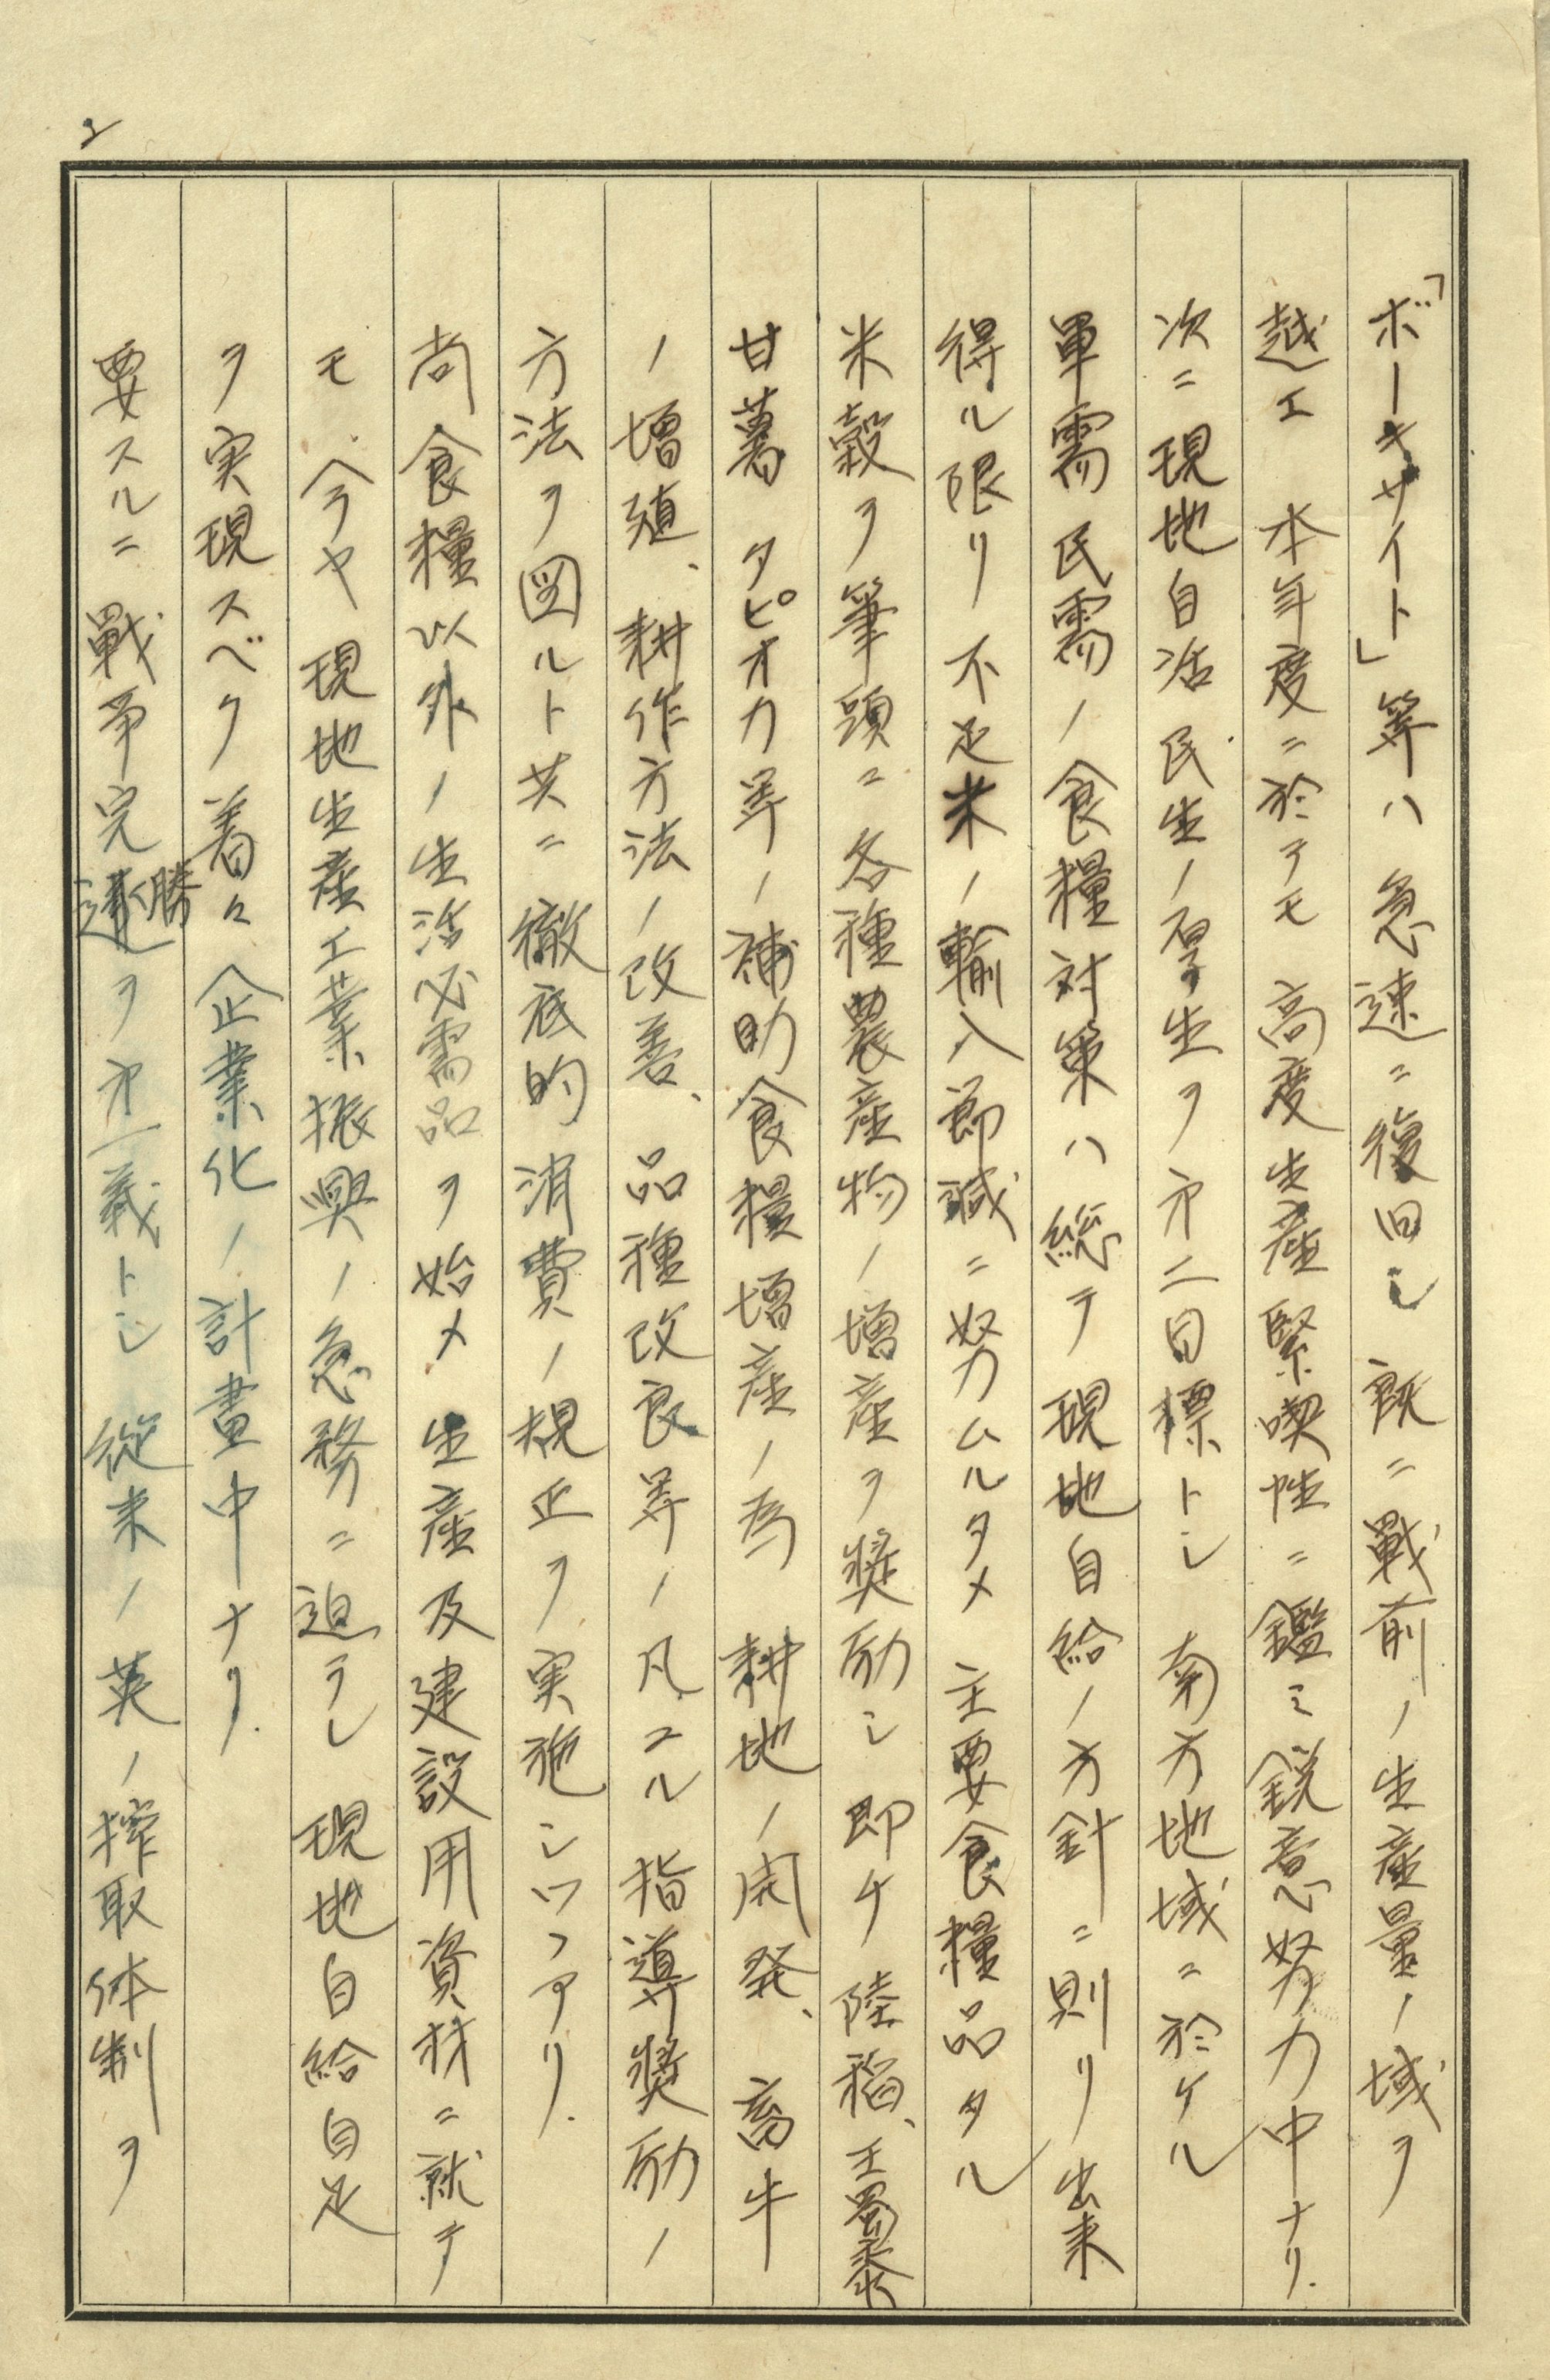 2
「ボーキサイト」等ハ急速ニ復旧シ 既ニ戰前ノ生産量ノ域ヲ
越エ 本年度ニ於テモ 高度生産緊喫性ニ鑑ミ 鋭意努力中ナリ.
次ニ現地自活民生ノ厚生ヲ㐧二目標トシ 南方地域ニ於ケル
軍需民需ノ食糧対策ハ総テ現地自給ノ方針ニ則リ出来
得ル限リ 不足米ノ輸入節減ニ努ムルタメ 主要食糧品タル
米穀ヲ筆頭ニ 各種農産物ノ増産ヲ奨励シ 即チ 陸稲、玉蜀黍
甘薯 タピオカ等ノ補助食糧増産ノ為 耕地ノ開発、畜牛
ノ増殖、耕作方法ノ改善、品種改良等ノ凡ユル指導奨励ノ
方法ヲ図ルト共ニ 徹底的消費ノ規正ヲ実施シツヽアリ.
尚食糧以外ノ生活必需品ヲ始メ 生産及建設用資材ニ就テ
モ、今ヤ現地生産工業振興ノ急務ニ迫ラレ 現地自給自足
ヲ実現スベク 着々企業化ノ計畫中ナリ.
要スルニ 戰争完勝達ヲ㐧一義トシ 從来ノ英ノ搾取体制ヲ